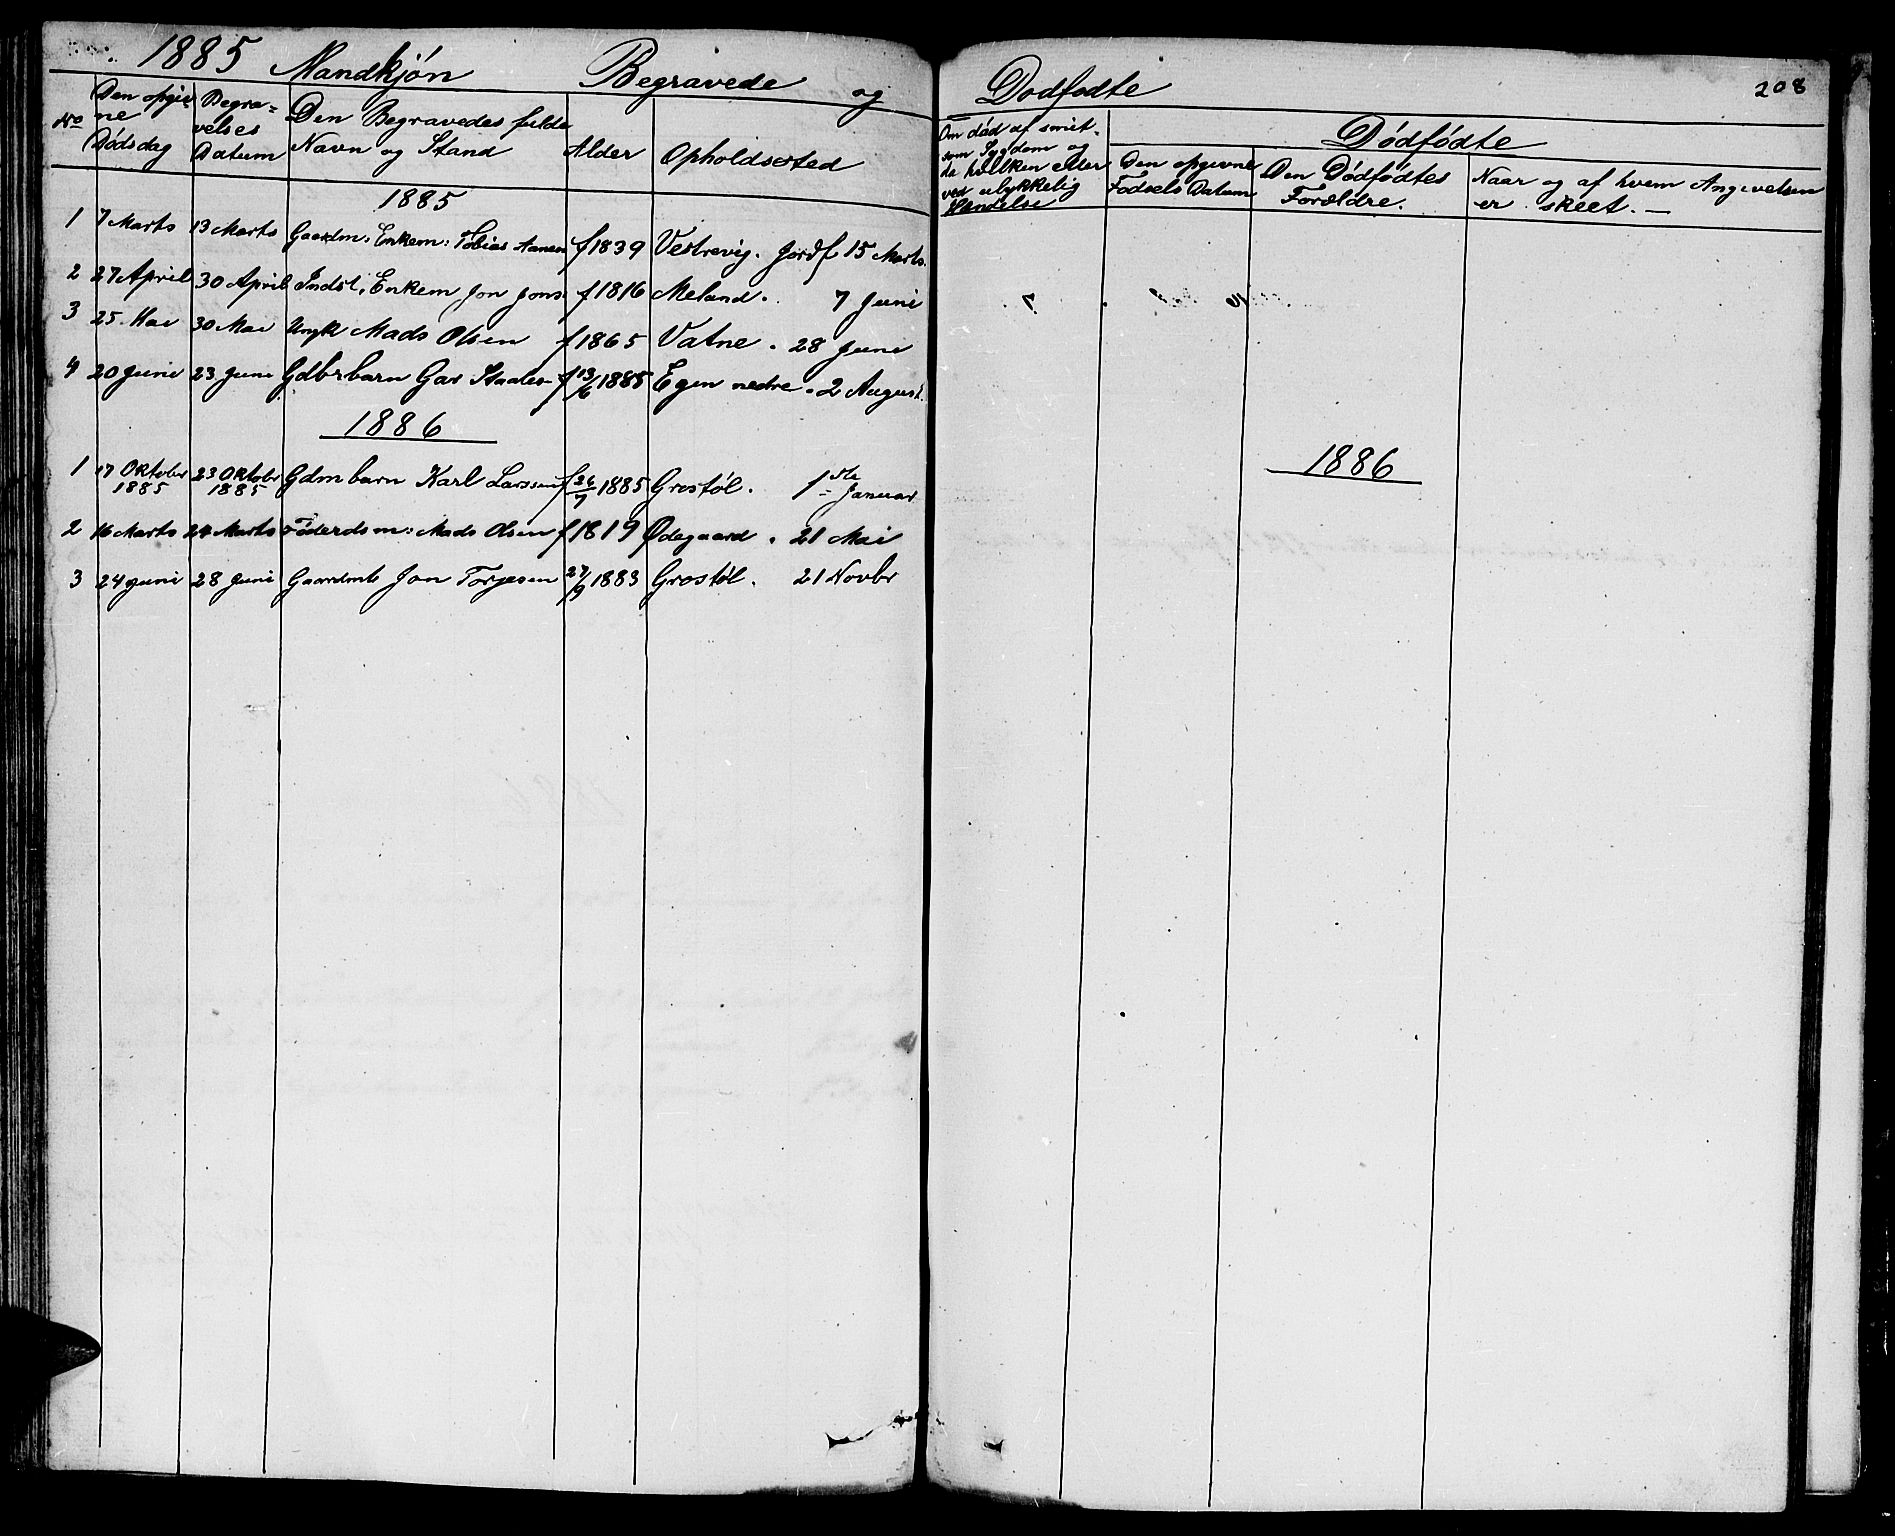 1885 Mandkjøn Begravede og Dødfødte 208
No
Den opgivne Dødsdag
Begravelses Datum
Den Begravedes fulde Navn og Stand
Alder
Opholdssted
Om død af smitsom Sygdom og da hvilken eller ved ulykkelig Hændelse
Dødfødte
Den opgivne Fødsels Datum
Den Dødfødtes Forældre.
Naar og af hvem Angivelsen er skeet. —
1885
1 7 Marts 13 Marts Gaardm: Enkem: Tobias Aanen f 1839 Vestrevig. Jordf 15 Marts.
2 27 April 30 April Indst, Enkem Jon Jons. f 1816 Meland. 7 Juni
3 25 Mai 30 Mai Ungk Mads Olsen f 1865 Vatne. 28 Juni
4 20 Juni 23 Juni Gdbrbarn Gar Staales f 13/6 1885 Egen nedre. 2 August.
1886
1 17 Oktober 1885 23 Oktobr 1885 Gdmbarn Karl Larssen f 26/7 1885 Grostøl. 1ste Januar
2 16 Marts 24 Marts Føderdsm: Mads Olsen f 1819 Ødegaard. 21 Mai
3 24 Juni 28 Juni Gaardmb Jon Torjesen 27/9 1883 Grostøl. 21 Novbr
1886